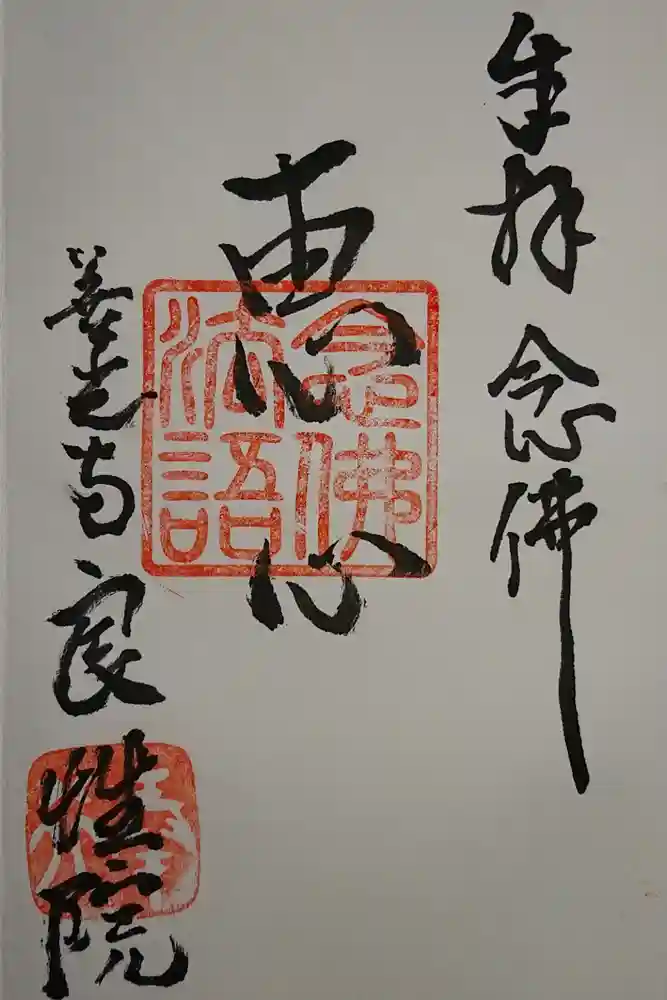 奉拝 念佛
恵心
念佛
法語
善光寺 良性院